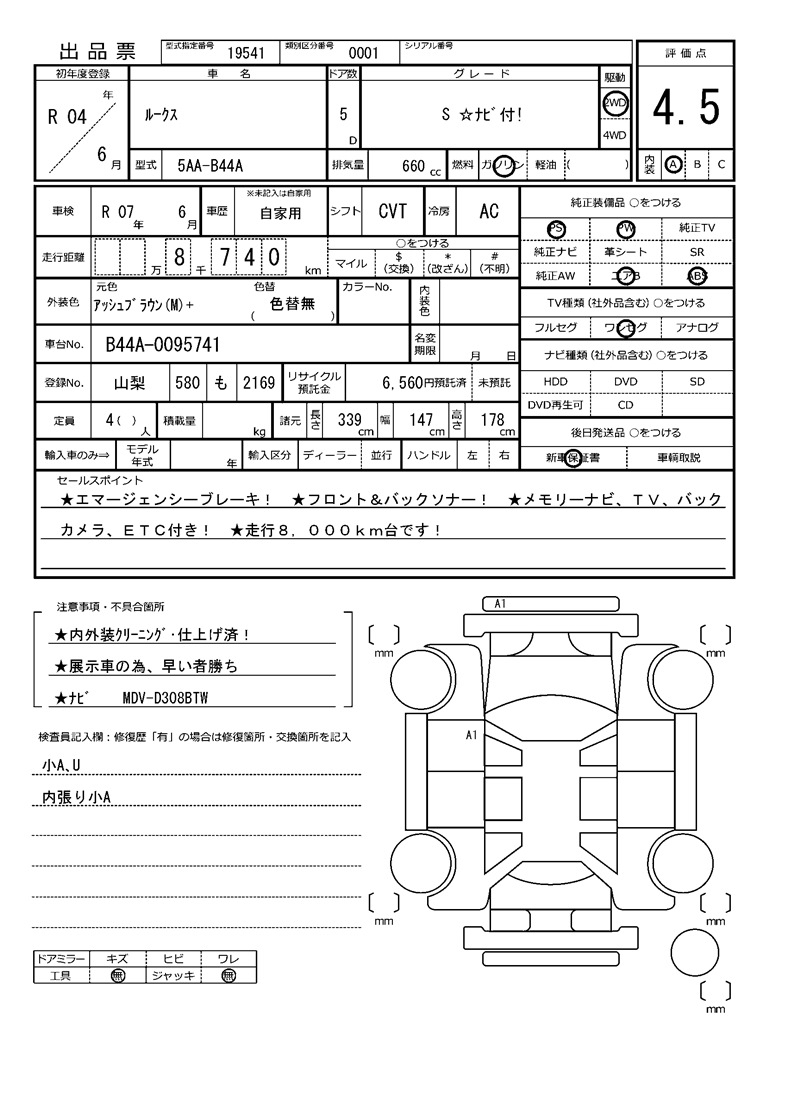 出品票 型式指定番号 19541 類別区分番号 0001 シリアル番号
評価点
4.5
内装 A B C
初年度登録 車名 ドア数 グレード 駆動
R 04 年 6 月 ルークス 5 D S ☆ナビ付! 2WD
4WD
型式 5AA-B44A 排気量 660 cc 燃料 ガソリン 軽油 ( )
車検 R 07 年 6 月 車歴 ※未記入は自家用 自家用 シフト CVT 冷房 AC
走行距離 万 8 千 7 4 0 km ○をつける
マイル $ (交換) * (改ざん) # (不明)
外装色 元色 アッシュブラウン(M)+ 色替 ( 色替無 ) カラーNo. 内装色
車台No. B44A-0095741 名変期限 月 日
登録No. 山梨 580 も 2169 リサイクル預託金 6,560円預託済 未預託
定員 4( )人 積載量 kg 諸元 長さ 339 cm 幅 147 cm 高さ 178 cm
輸入車のみ⇒ モデル年式 年 輸入区分 ディーラー 並行 ハンドル 左 右
純正装備品 ○をつける
PS PW 純正TV
純正ナビ 革シート SR
純正AW エアB ABS
TV種類(社外品含む)○をつける
フルセグ ワンセグ アナログ
ナビ種類(社外品含む)○をつける
HDD DVD SD
DVD再生可 CD
後日発送品 ○をつける
新車保証書 車輌取説
セールスポイント
★エマージェンシーブレーキ! ★フロント&バックソナー! ★メモリーナビ、TV、バック
カメラ、ETC付き! ★走行8,000km台です!
注意事項・不具合箇所
★内外装クリーニング・仕上げ済!
★展示車の為、早い者勝ち
★ナビ MDV-D308BTW
検査員記入欄:修復歴「有」の場合は修復箇所・交換箇所を記入
小A、U
内張り小A
ドアミラー キズ ヒビ ワレ
工具 無 ジャッキ 無
A1
mm mm
A1
mm mm
mm